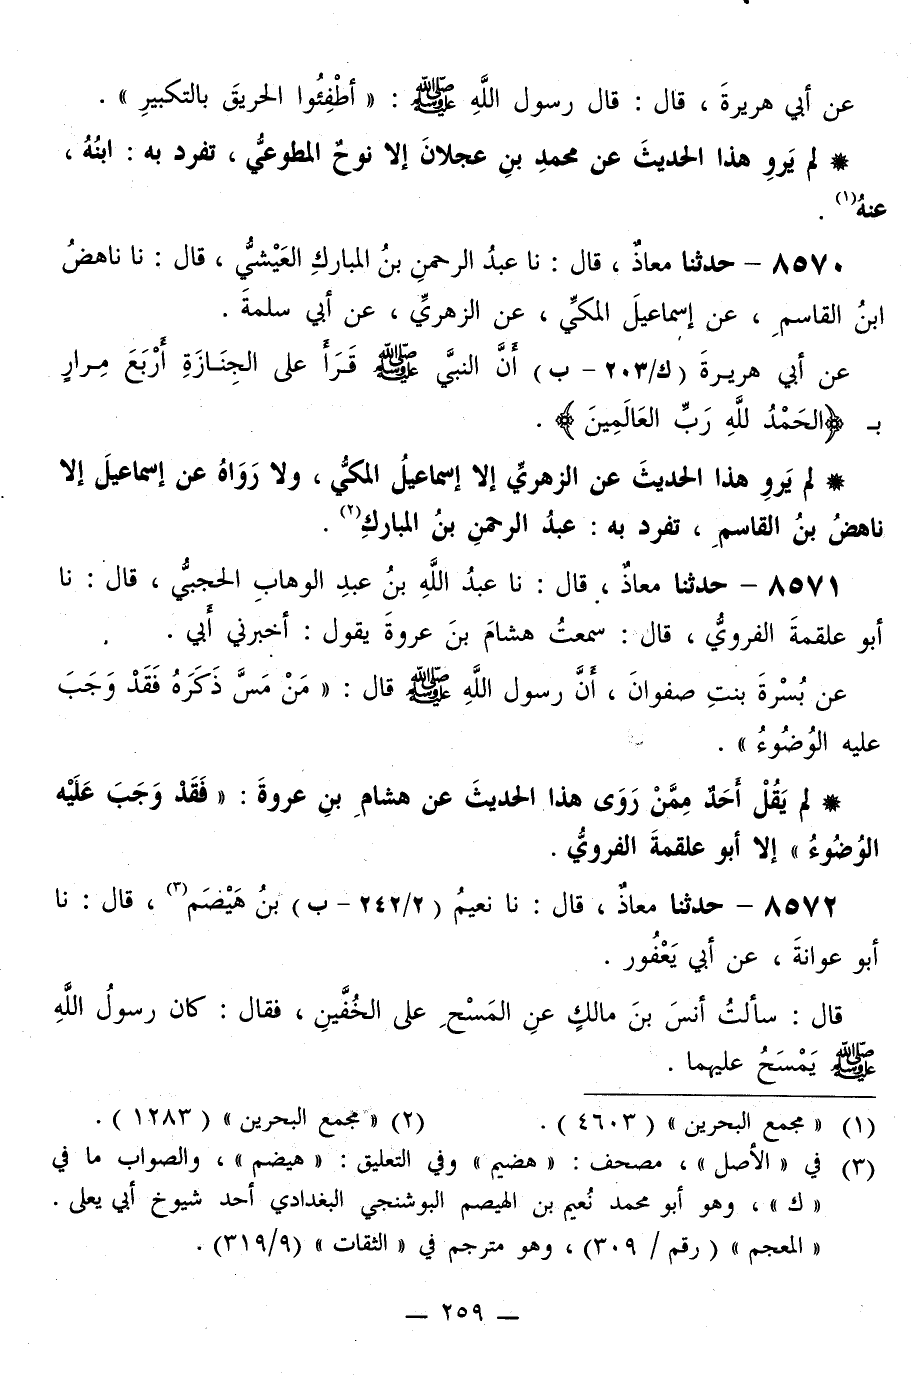 عن أبي هريرةَ ، قال : قال رسول اللَّهِ ﷺ : « أطْفِئُوا الحريقَ بالتكبيرِ » .
* لم يَروِ هذا الحديثَ عن محمدِ بنِ عجلانَ إلا نوحٌ المطوعيُّ ، تفرد به : ابنُهُ ،
عنهُ(١) .
٨٥٧٠ – حدثنا معاذٌ ، قال : نا عبدُ الرحمنِ بنُ المباركِ العَيْشيُّ ، قال : نا ناهضُ
ابنُ القاسمِ ، عن إسماعيلَ المكيِّ ، عن الزهريِّ ، عن أبي سلمةَ .
عن أبي هريرةَ (ك/٢٠٣ – ب) أَنَّ النبيَّ ﷺ قَرَأَ على الجِنَازَةِ أَرْبَعَ مِرارٍ
بـ ﴿الحَمْدُ للَّهِ رَبِّ العَالَمِينَ﴾ .
* لم يَروِ هذا الحديثَ عن الزهريِّ إلا إسماعيلُ المكيُّ ، ولا رَوَاهُ عن إسماعيلَ إلا
ناهضُ بنُ القاسمِ ، تفرد به : عبدُ الرحمنِ بنُ المباركِ(٢) .
٨٥٧١ – حدثنا معاذٌ ، قال : نا عبدُ اللَّهِ بنُ عبدِ الوهابِ الحجبيُّ ، قال : نا
أبو علقمةَ الفرويُّ ، قال : سمعتُ هشامَ بنَ عروةَ يقول : أخبرني أَبي .
عن بُسْرةَ بنتِ صفوانَ ، أَنَّ رسول اللَّهِ ﷺ قال : « مَنْ مَسَّ ذَكَرَهُ فَقَدْ وَجَبَ
عليه الوُضُوءُ » .
* لم يَقُلْ أَحَدٌ مِمَّنْ رَوَى هذا الحديثَ عن هشامِ بنِ عروةَ : « فَقَدْ وَجَبَ عَلَيْه
الوُضُوءُ » إلا أبو علقمةَ الفرويُّ .
٨٥٧٢ – حدثنا معاذٌ ، قال : نا نعيمُ (٢٤٢/٢ – ب) بنُ هَيْصَم(٣) ، قال : نا
أبو عوانةَ ، عن أبي يَعْفُور .
قال : سألتُ أنسَ بنَ مالكٍ عنِ المَسْحِ على الخُفَّينِ ، فقال : كان رسولُ اللَّهِ
ﷺ يَمْسَحُ عليهما .
(١) « مجمع البحرين » ( ٤٦٠٣ ) . (٢) « مجمع البحرين » ( ١٢٨٣ ) .
(٣) في « الأصل » ، مصحف : « هضيم » وفي التعليق : « هيضم » ، والصواب ما في
« ك » ، وهو أبو محمد نُعيم بن الهيصم البوشنجي البغدادي أحد شيوخ أبي يعلى .
« المعجم » ( رقم / ٣٠٩ ) ، وهو مترجم في « الثقات » (٣١٩/٩) .
— ٢٥٩ —